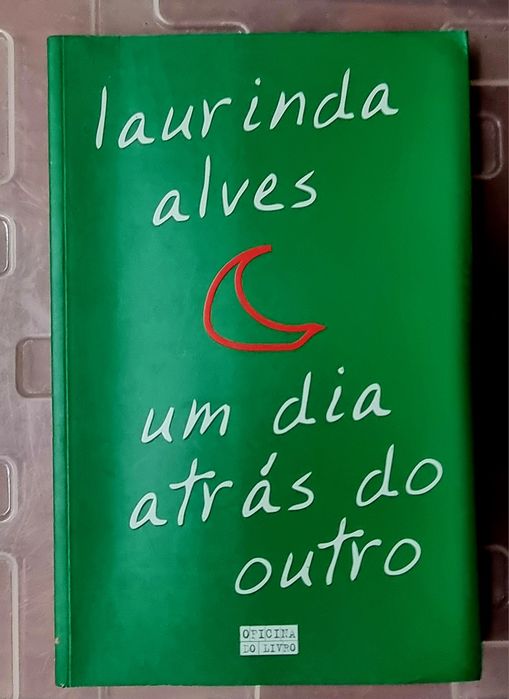 laurinda
alves
um dia
atrás do
outro
OFICINA
DO LIVRO